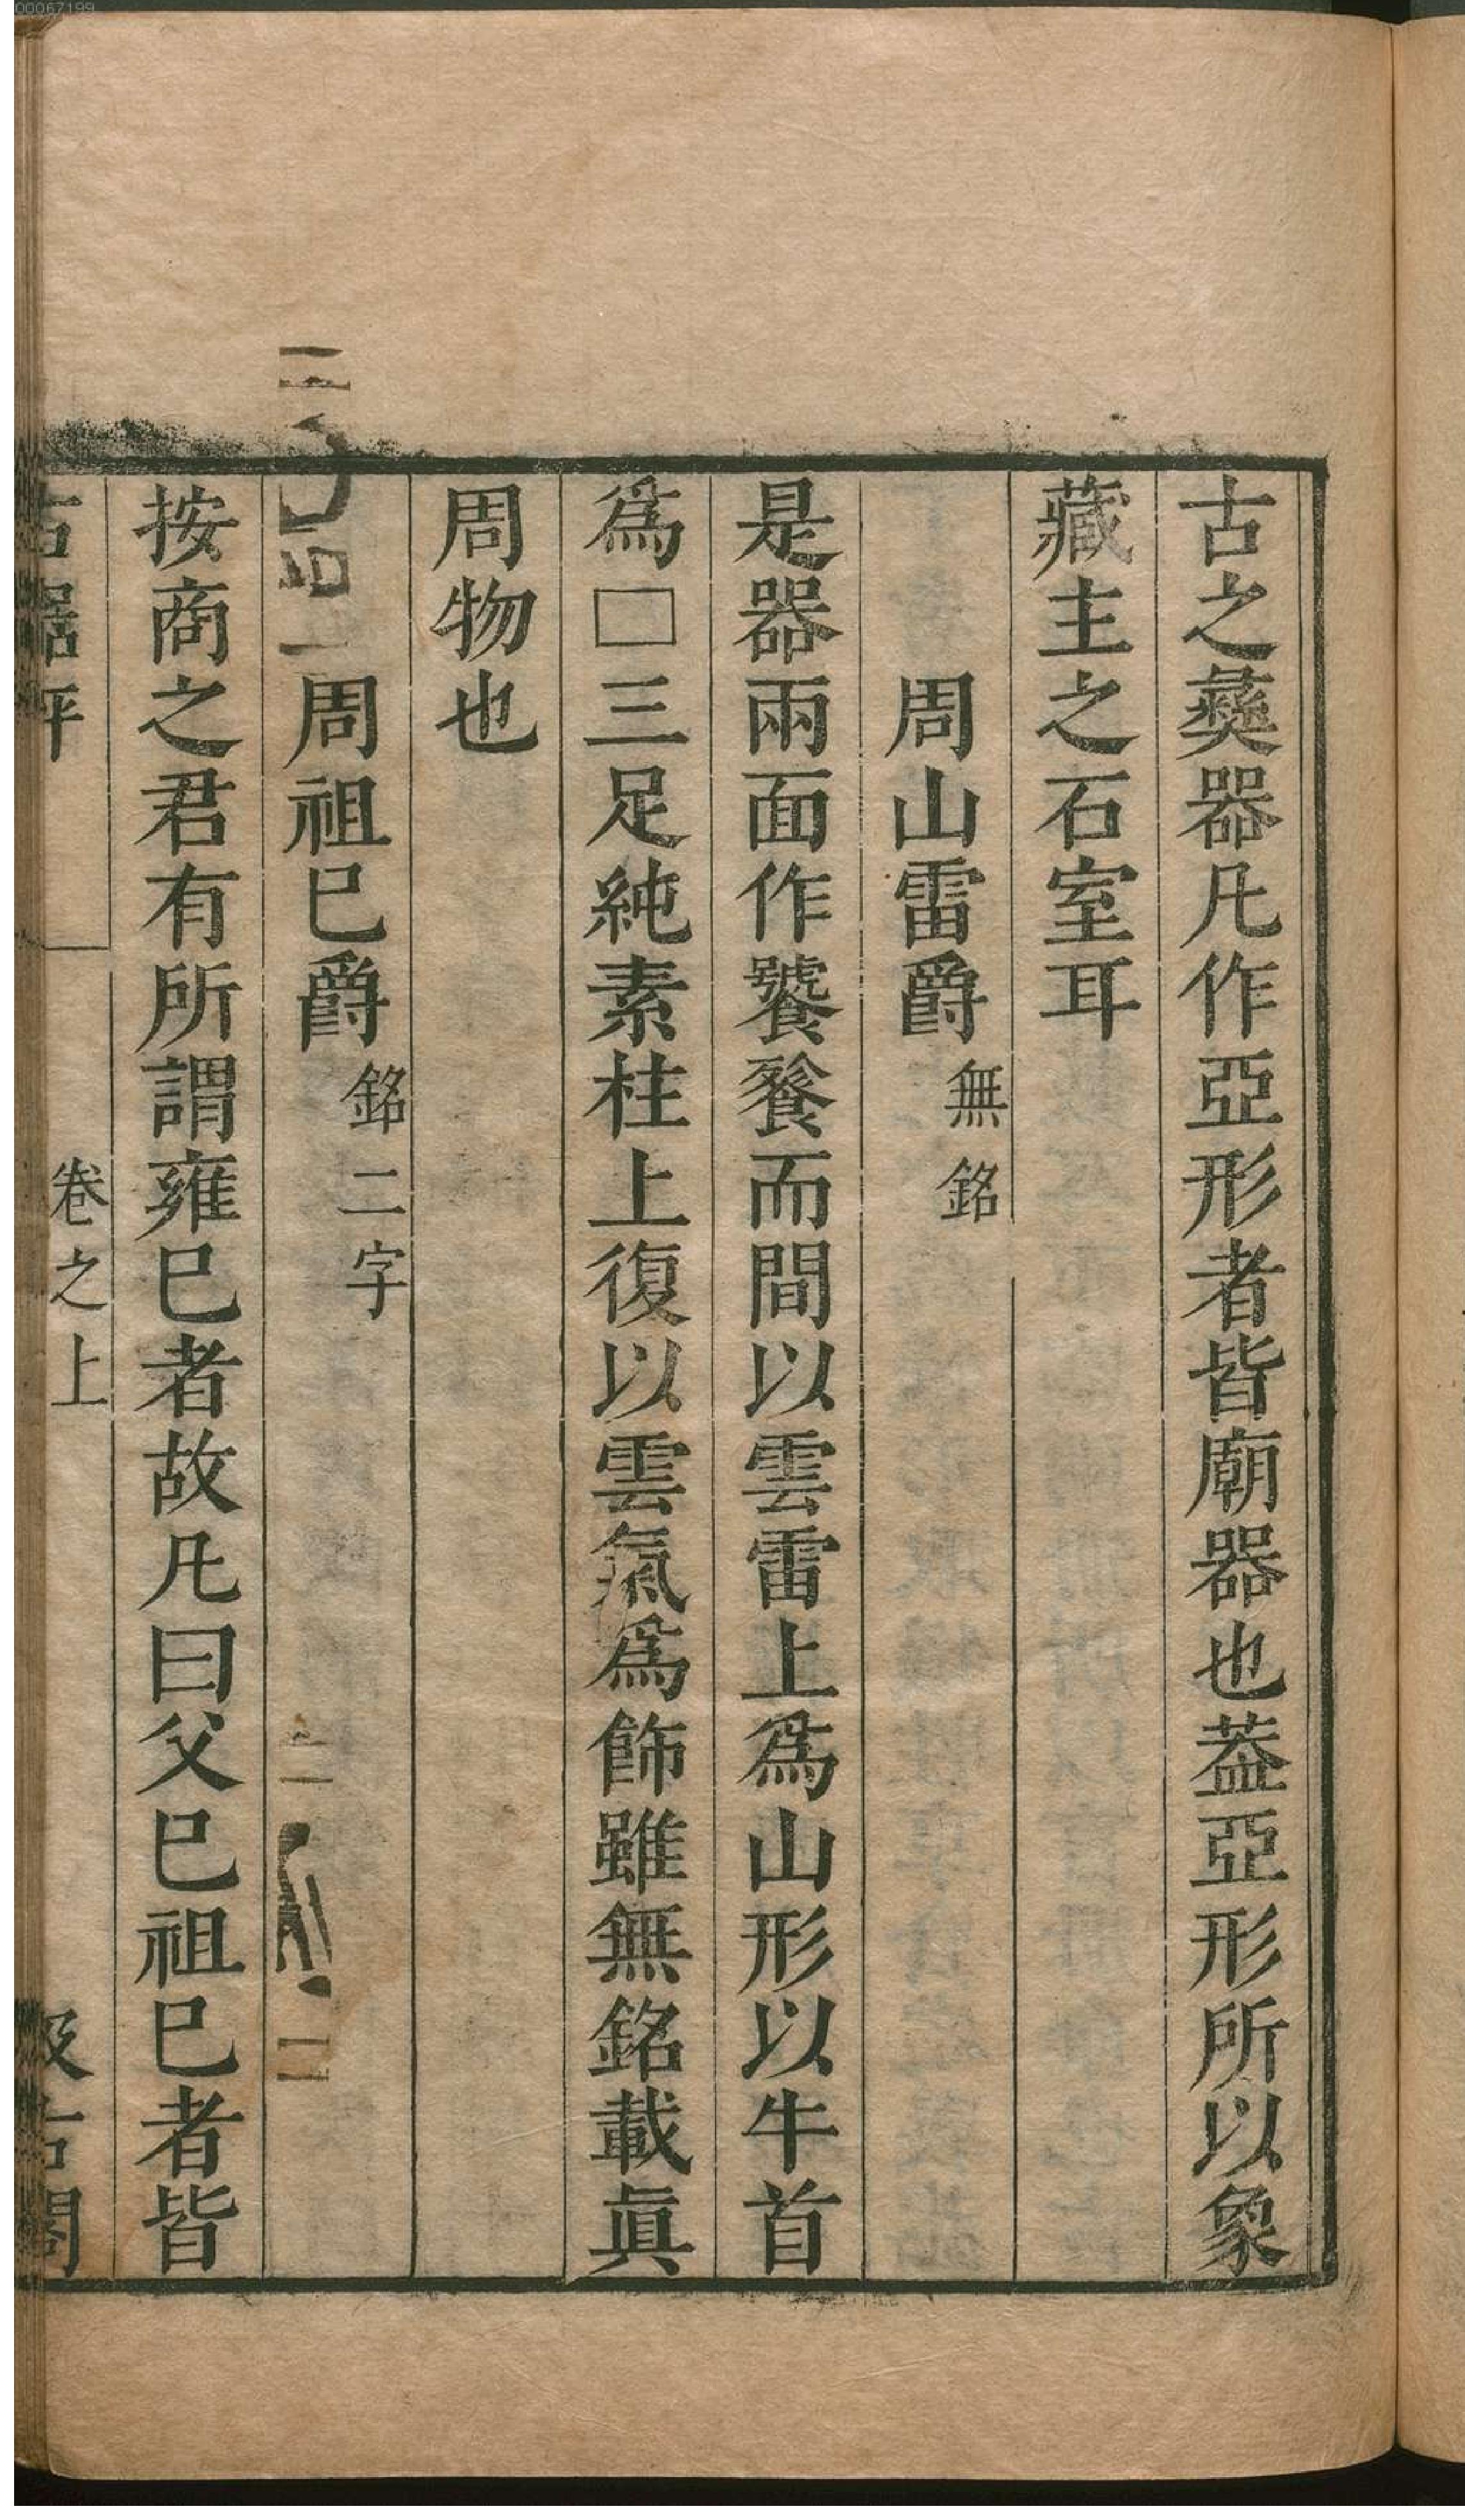 00067199
古之彝器凡作亞形者皆廟器也葢亞形所以象
藏主之石室耳
周山雷爵無銘
是器兩面作饕餮而間以雲雷上爲山形以牛首
爲□三足純素柱上復以雲氣爲飾雖無銘載眞
周物也
周祖巳爵銘二字
按商之君有所謂雍巳者故凡曰父巳祖巳者皆
卷之上